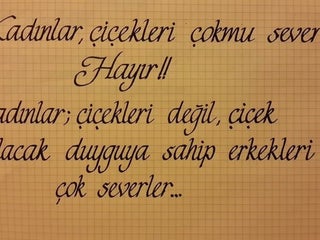 Kadınlar, çiçekleri çokmu sever
Hayır!!
adınlar; çiçekleri değil, çiçek
lacak duyguya sahip erkekleri
çok severler...